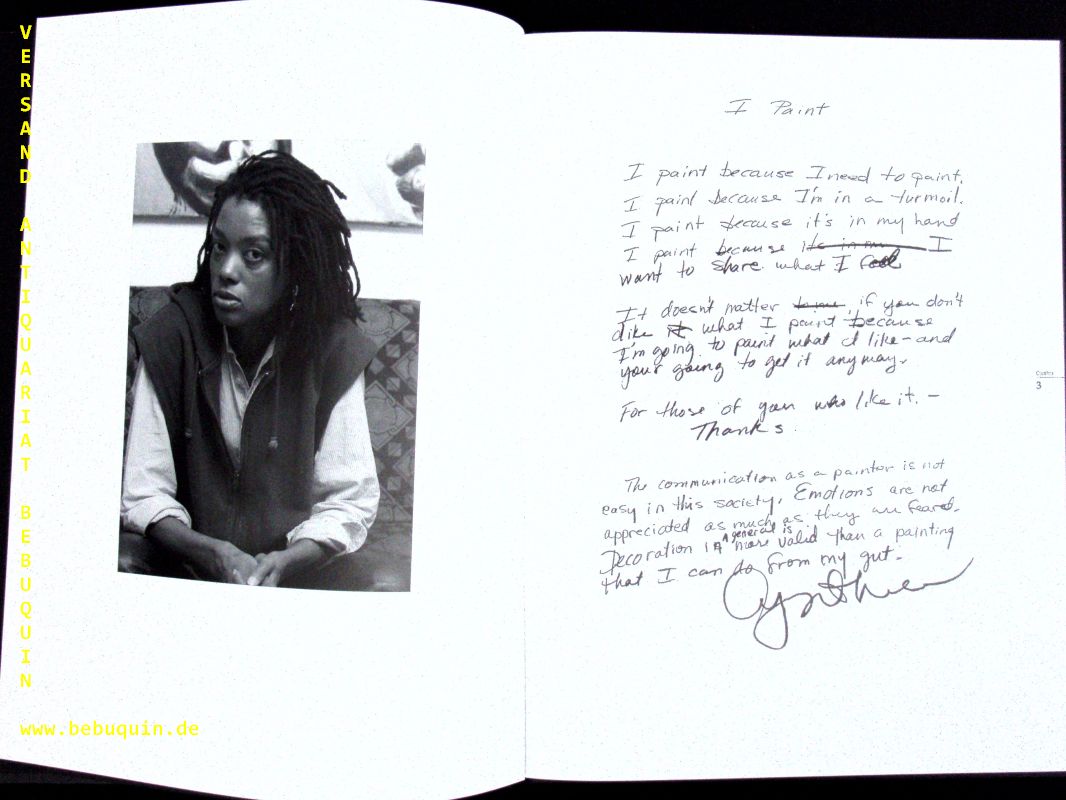 VERSAND ANTIQUARIAT BEBUQUIN
www.bebuquin.de
I Paint
I paint because I need to paint.
I paint because I'm in a turmoil.
I paint because it's in my hand
I paint because its in my I
want to share what I feel
It doesn't matter to me if you don't
like it what I paint because
I'm going to paint what I like - and
your going to get it anyway.
For those of you who like it. -
Thanks.
The communication as a painter is not
easy in this society. Emotions are not
appreciated as much as they are feared.
Decoration in general is more valid than a painting
that I can do from my gut.
Cynthia
3